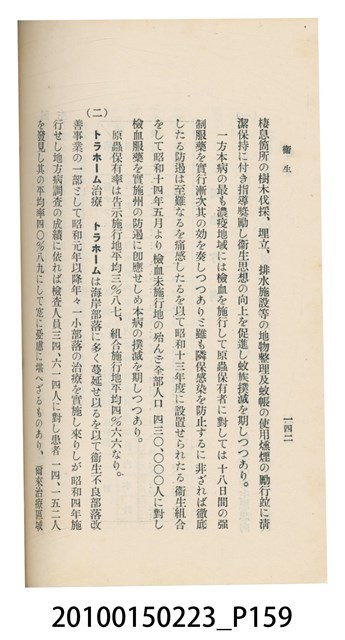 衞生
一四二
棲息箇所の樹木伐採、埋立、排水施設等の地物整理及蚊帳の使用燻煙の勵行竝に淸
潔保持に付き指導奬勵し衞生思想の向上を促進し蚊族撲滅を期しつつあり。
一方本病の最も濃疫地域には檢血を施行して原蟲保有者に對しては十八日間の强
制服藥を實行漸次其の効を奏しつつありと雖も隣保感染を防止するに非ざれば徹底
したる防遏は至難なるを痛感したるを以て昭和十三年度に設置せられたる衞生組合
をして昭和十四年五月より檢血未施行地の殆んど全部人口四三〇、〇〇〇人に對し
檢血服藥を實施州の防遏に卽應せしめ本病の撲滅を期しつつあり。
原蟲保有率は吿示施行地平均三%八七、組合施行地平均四%六六なり。
(二) トラホーム治療 トラホームは海岸部落に多く蔓延せ以るを以て衞生不良部落改
善事業の一部として昭和元年以降年々一小部落の治療を實施し來りしが昭和四年施
行せし地方病調査の成績に依れば檢査人員三四、六一四人に對し患者一四、一五二人
を發見し其の平均率四〇%八九にして寔に憂慮に堪へざるものあり、爾來治療區域
20100150223_P159